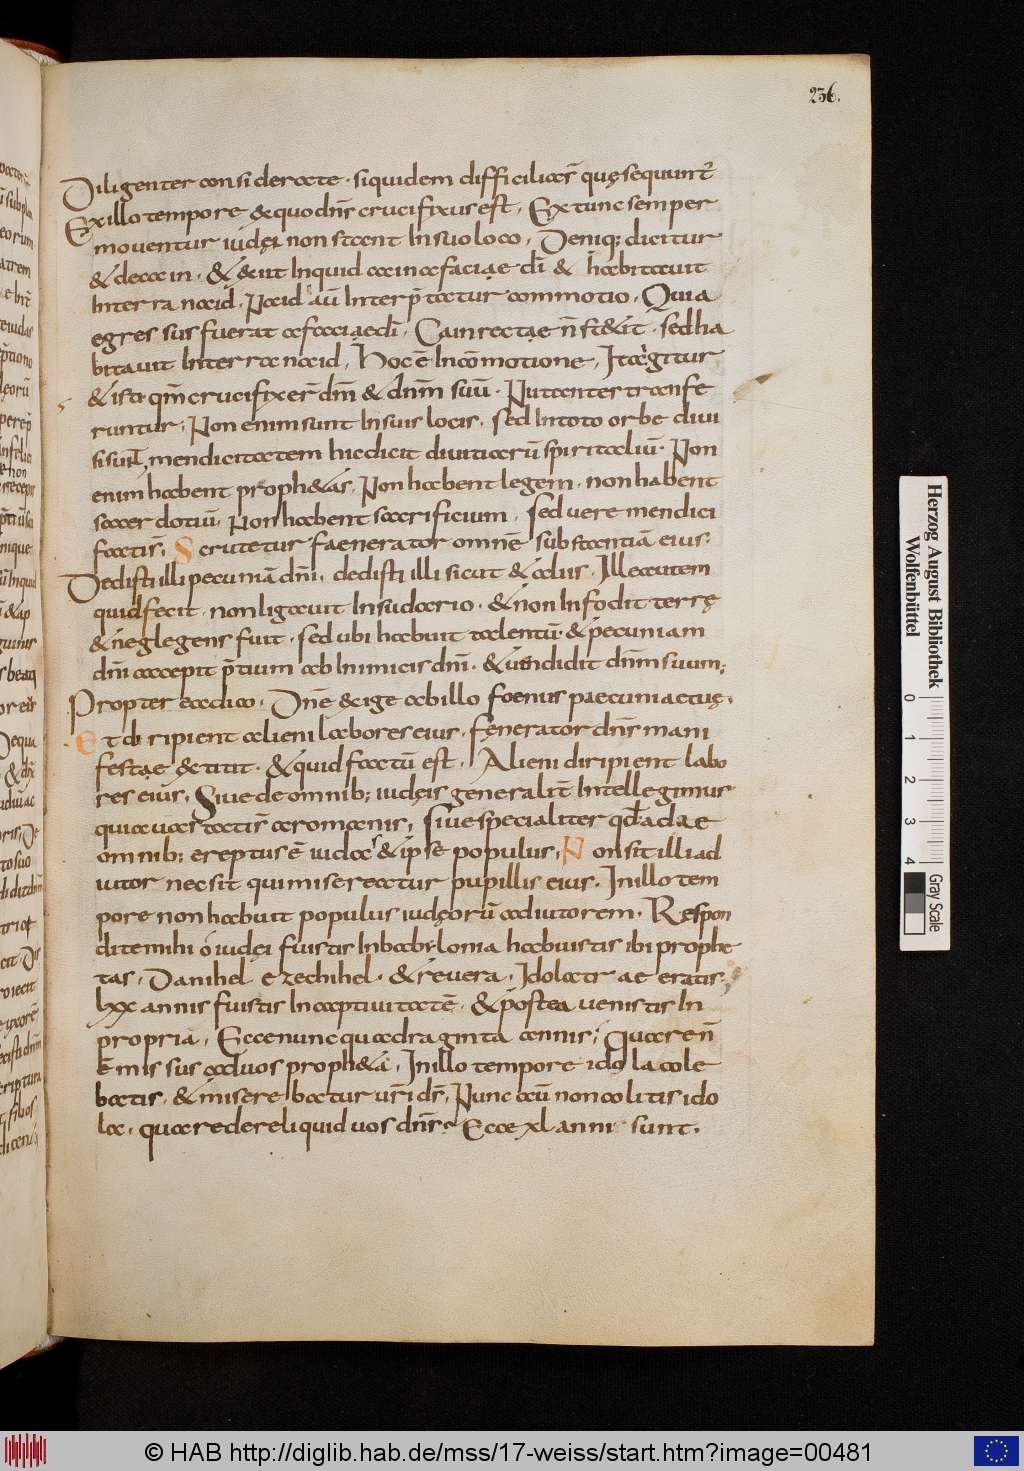 236.
Diligenter considerate · siquidem difficiliar̄ quę sequunt᷑
Ex illo tempore & quo dn̄s crucifixus est, Ex tunc semper
moventur iudęi non stant In suo loco, Deniq; dicitur
& de cain · & exiit Inquid cain a faciae dī & habitavit
In terra naid, Naid aū Interp̄tatur commotio, Quia
egressus fuerat a faciae dī, Cain rectae n̄ st&it · sed ha
bitavit In terra naid, Hoc ē In cōmotione, Ita Igitur
& isti qm̄ crucifixer̄ dm̄ & dnm̄ suū · Nutanter transfe
runtur, Non enim sunt In suis locis, sed In toto orbe diui
si sunt, mendicitatem hic dicit divitiarū spiritaliū · Non
enim habent proph&as, Non habent legem, non habent
sacerdotiū, Non habent sacrificium, sed vere mendici
facti s̄, Scrutetur faenerator omnē substantiā eius·
Dedisti illi pecuniā dn̄i, dedisti illi sicut & aliis, Ille autem
quid fecit, non ligavit In sudario, & non Infodit terrę
& neglegens fuit, sed ubi habuit talentū & pecuniam
dn̄i accepit p̄tium ab Inimicis dn̄i, & vendidit dnm̄ suum;
Propter ea dico, Dn̄e exige ab illo foenus paecuniae tuę,
Et diripient alieni labores eius, fęnerator dn̄s mani
festae extitit, & quid factū est, Alieni diripient labo
res eius, Sive de omnib; iudęis generalit̄ Intellegimus
quia vastati s̄ a romanis, sive specialiter qd̄ ad ae
omnib; ereptus ē iudas & ipse populus, Non sit illi ad
iutor nec sit qui misereatur pupillis eius, In illo tem
pore non habuit populus iudęorū adiutorem, Respon
dite mihi o iudęi fuistis In babylonia habuistis ibi prophe
tas, Danihel ezechihel, & revera, Idolatrae eratis,
lxx annis fuistis In captivitatē, & postea venistis In
propria, Ecce nunc quadraginta annis, Quare n̄
ē missus ad vos proph&a, In illo tempore idola cole
batis, & miserebatur vr̄i ds̄, Nunc aū non colitis ido
la, quare dereliquid vos dn̄s? Ecce xl anni sunt,
Herzog August Bibliothek
Wolfenbüttel
0 1 2 3 4
Gray Scale
© HAB http://diglib.hab.de/mss/17-weiss/start.htm?image=00481